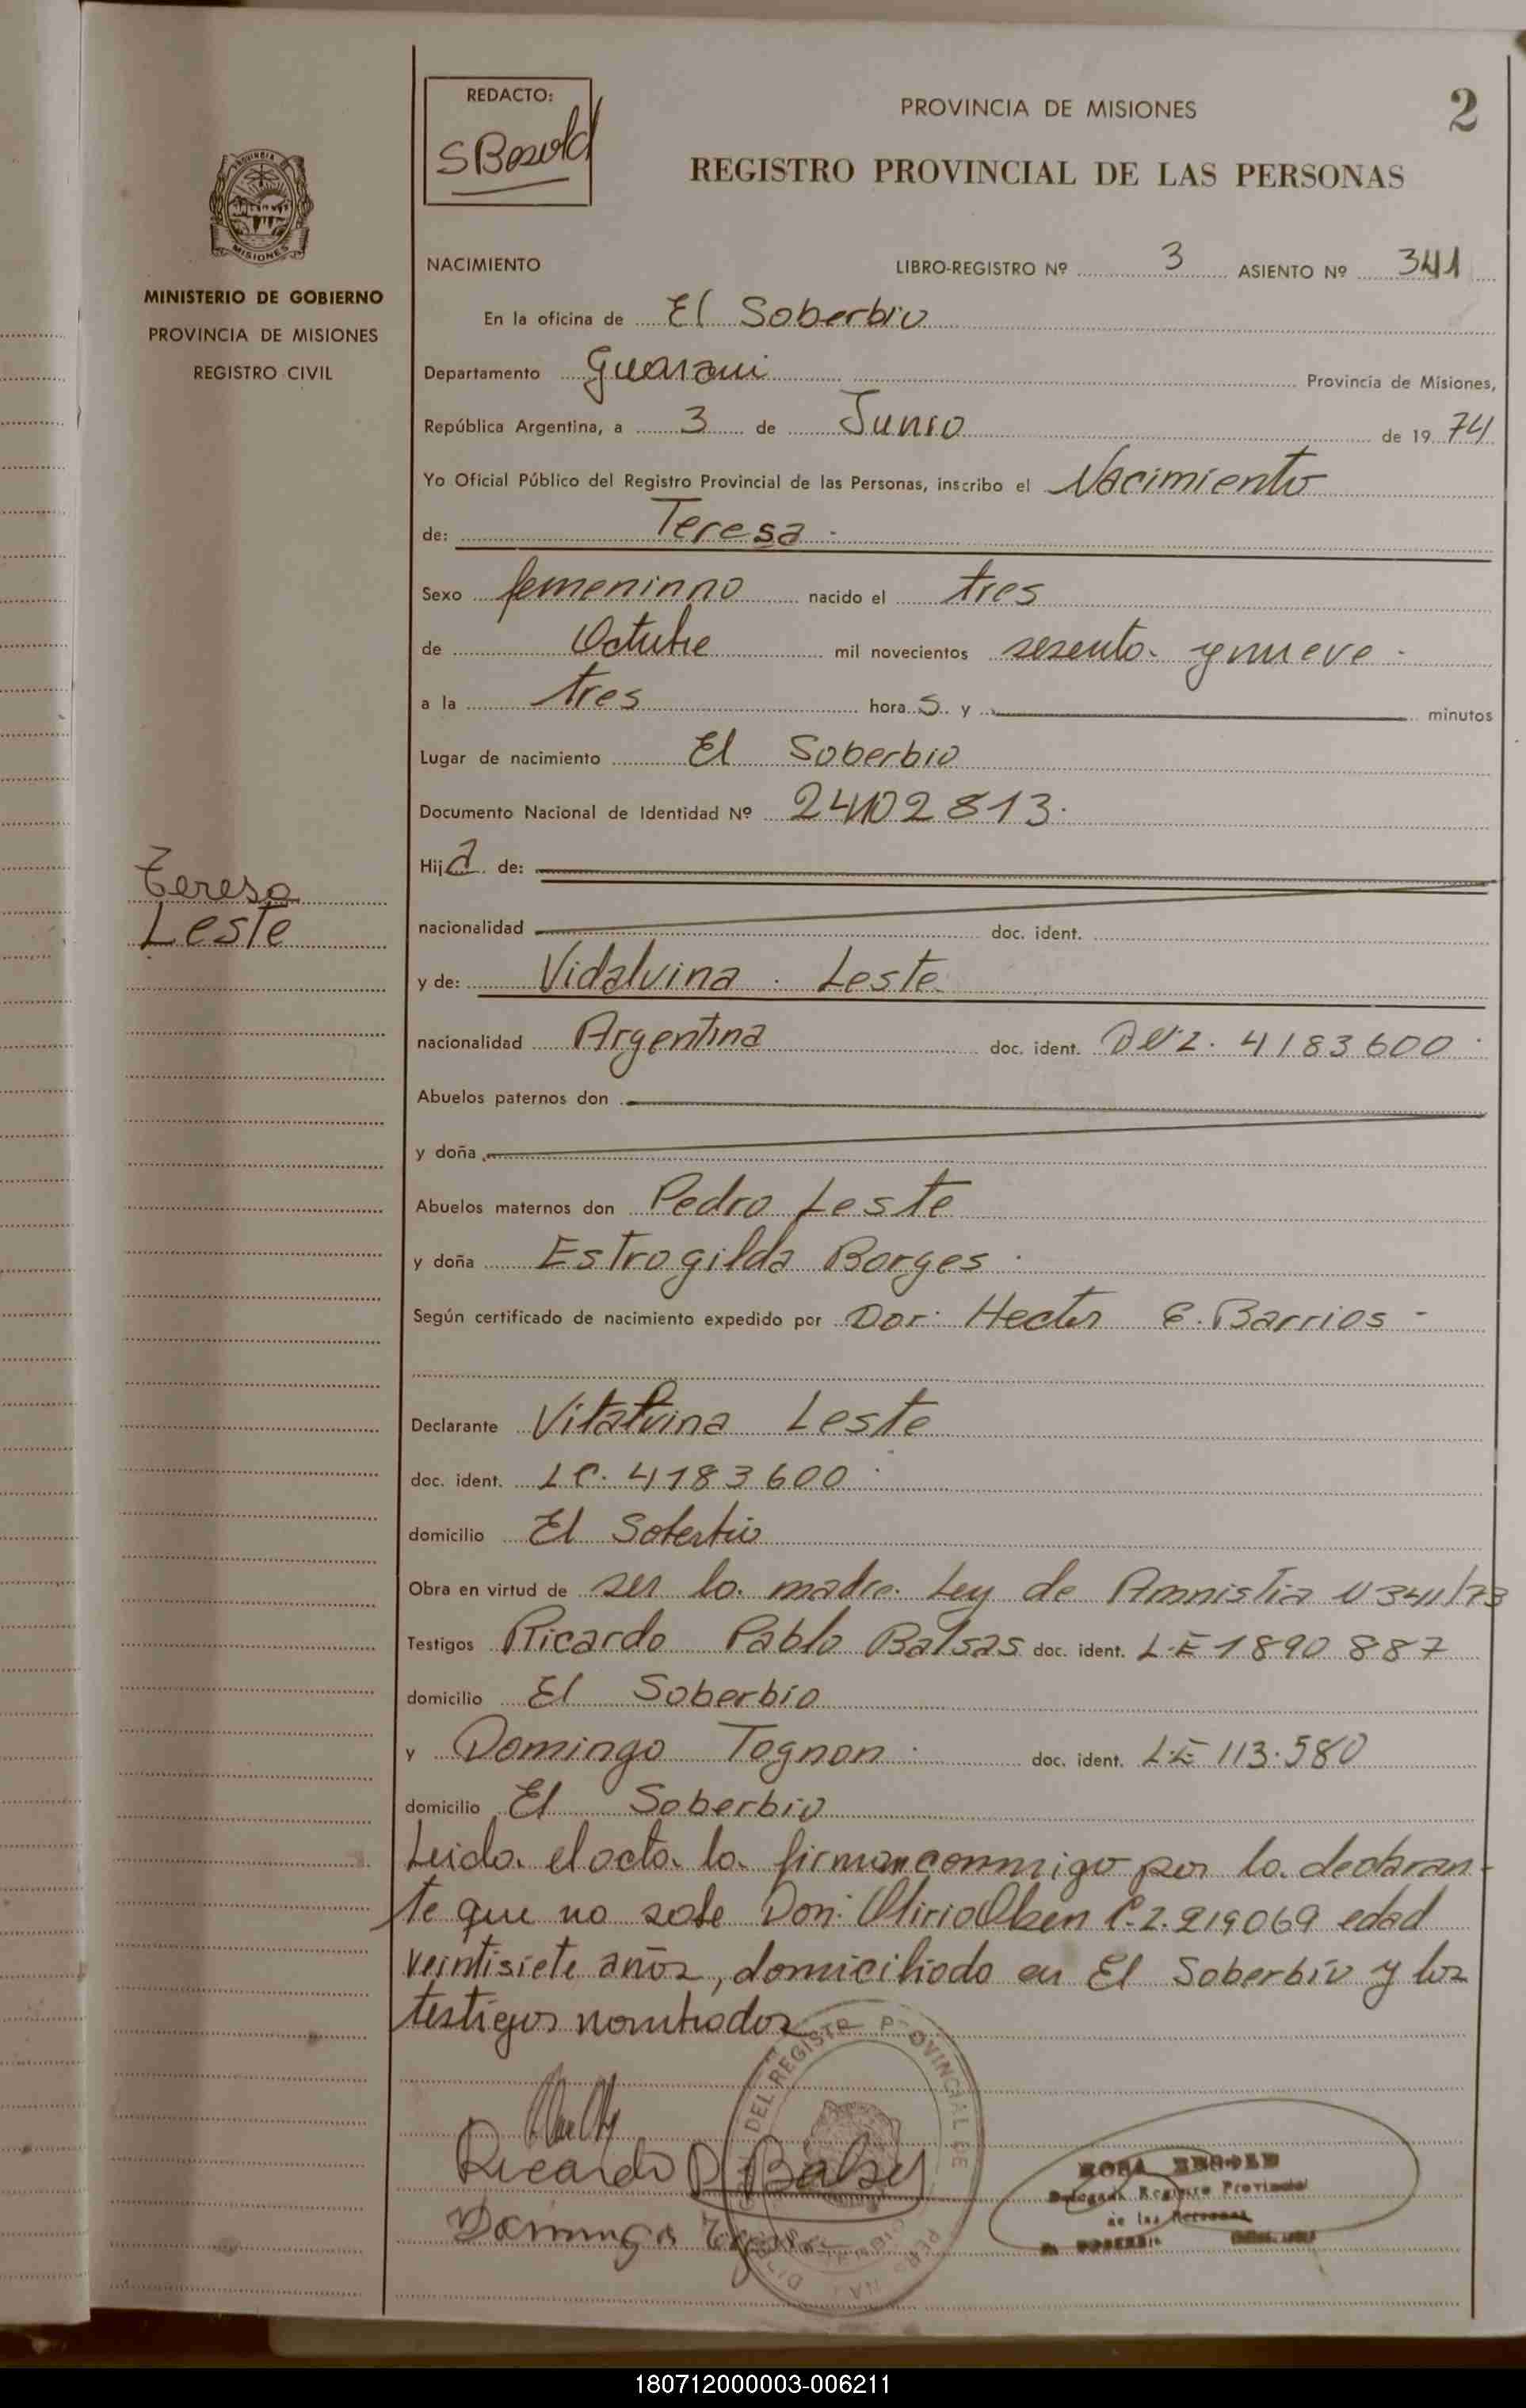 REDACTO:
SBosold
PROVINCIA DE MISIONES
2
REGISTRO PROVINCIAL DE LAS PERSONAS
MISIONES
MINISTERIO DE GOBIERNO
PROVINCIA DE MISIONES
REGISTRO CIVIL
NACIMIENTO
LIBRO-REGISTRO Nº 3 ASIENTO Nº 341
En la oficina de El Soberbio
Departamento Guarani Provincia de Misiones,
República Argentina, a 3 de Junio de 1974
Yo Oficial Público del Registro Provincial de las Personas, inscribo el Nacimiento
de: Teresa
Sexo femeninno nacido el tres
de Octubre mil novecientos sesenta y nueve
a la tres horas y minutos
Lugar de nacimiento El Soberbio
Documento Nacional de Identidad Nº 24102813
Hija de:
Teresa
Leste
nacionalidad doc. ident.
y de: Vidalvina Leste
nacionalidad Argentina doc. ident. 4183600
Abuelos paternos don
y doña
Abuelos maternos don Pedro Leste
y doña Estrogilda Borges
Según certificado de nacimiento expedido por Dor: Hector E. Barrios
Declarante Vitalvina Leste
doc. ident. LC. 4183600
domicilio El Soberbio
Obra en virtud de ser la madre. Ley de Amnistia N 341/73
Testigos Ricardo Pablo Balsas doc. ident. L.E 1890887
domicilio El Soberbio
y Domingo Tognon doc. ident. L.E 113.580
domicilio El Soberbio
Leida el acta la firman conmigo por la declaran-
te que no sabe Don: Olirio Olsen C.I. 219069 edad
veintisiete años, domiciliado en El Soberbio y los
testigos nombrados
DEL REGISTRO PROVINCIAL DE
Ricardo P Balsas
Domingo
Delegada Registro Provincial
de las Personas
180712000003-006211